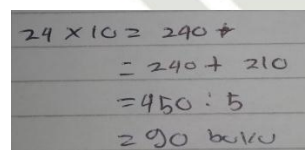 24 × 10 = 240 +
= 240 + 210
= 450 : 5
= 90 buku